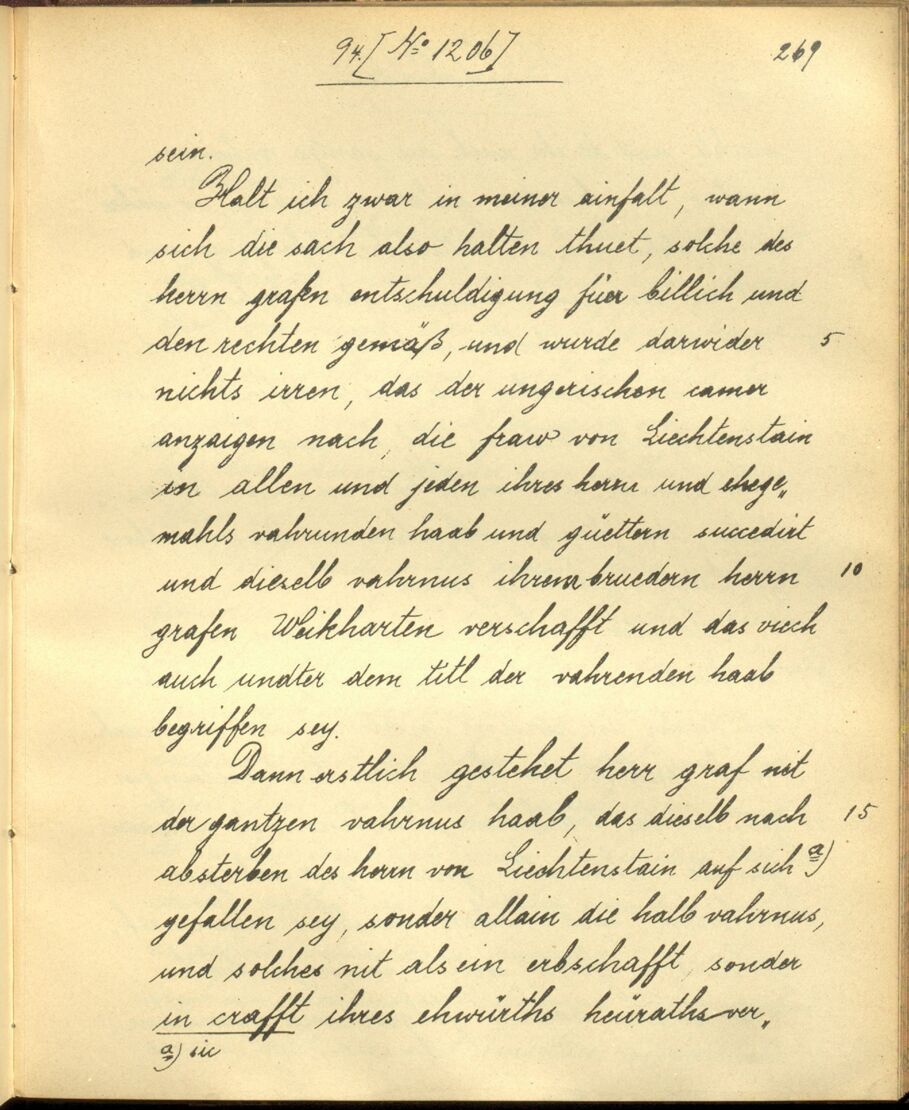 94. [No 1206]
269
sein.
Halt ich zwar in meiner ainfalt, wann
sich die sach also halten thuet, solche des
herrn grafen entschuldigung füer billich und
den rechten gemäß, und wurde darwider 5
nichts irren, das der ungerischen camer
anzaigen nach, die fraw von Liechtenstain
in allen und jeden ihres herrn und ehege„
mahls vahrunden haab und güettern succedirt
und dieselb vahrnus ihrem bruedern herrn 10
grafen Weikharten verschafft und das viech
auch undter dem titl der vahrenden haab
begriffen sey.
Dann erstlich gestehet herr graf nit
der gantzen vahrnus haab, das dieselb nach 15
absterben des herrn von Liechtenstain auf sich a)
gefallen sey, sonder allain die halb vahrnus,
und solches nit als ein erbschafft, sonder
in crafft ihres ehwürths heüraths ver„
a) sic